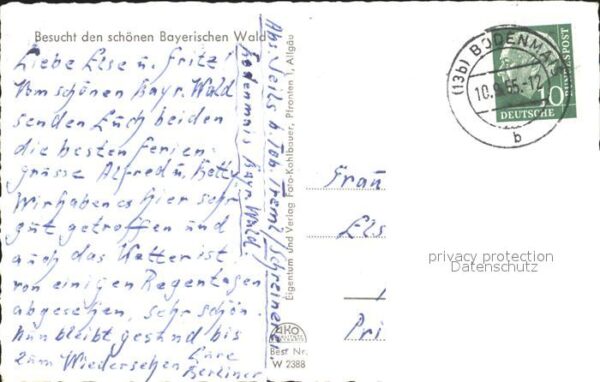 Besucht den schönen Bayerischen Wald
Liebe Else u. Fritz!
Vom schönen Bayr. Wald
senden Euch beiden
die besten Ferien-
grüsse Alfred u. Hetty
Wir haben es hier sehr
gut getroffen und
auch das Wetter ist
von einigen Regentagen
abgesehen, sehr schön.
Nun bleibt gesund bis
zum Wiedersehen Eure
Berliner
Abs. b. Schreinerei
Bodenmais Bayr. Wald.
Eigentum und Verlag Foto-Kohlbauer, Pfronten 1, Allgäu
AKO
Best Nr.
W 2388
(13b) BODENMAIS
10.9.55.-12
b
10
DEUTSCHE
BUNDESPOST
Frau
Els
Pri
privacy protection
Datenschutz